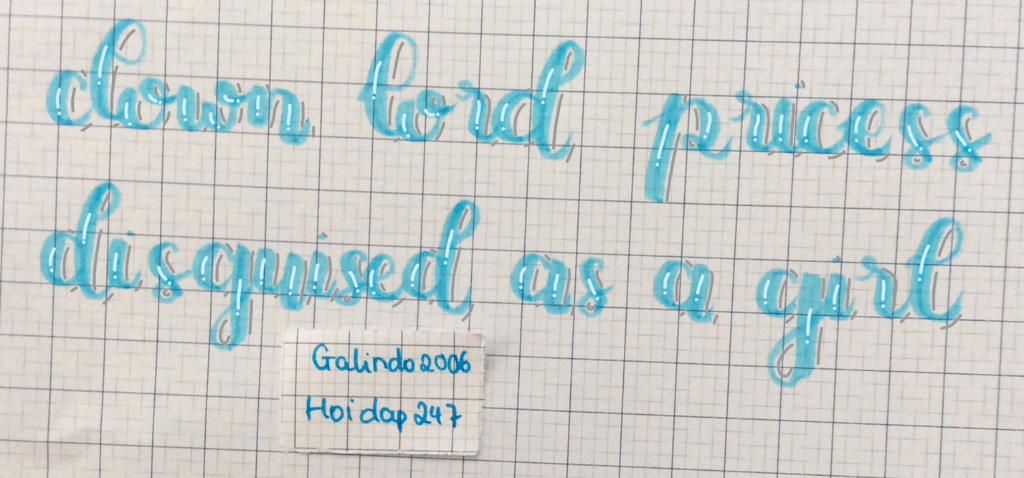 clown lord pricess
disguised as a girl
Galindo2006
Hoidap247